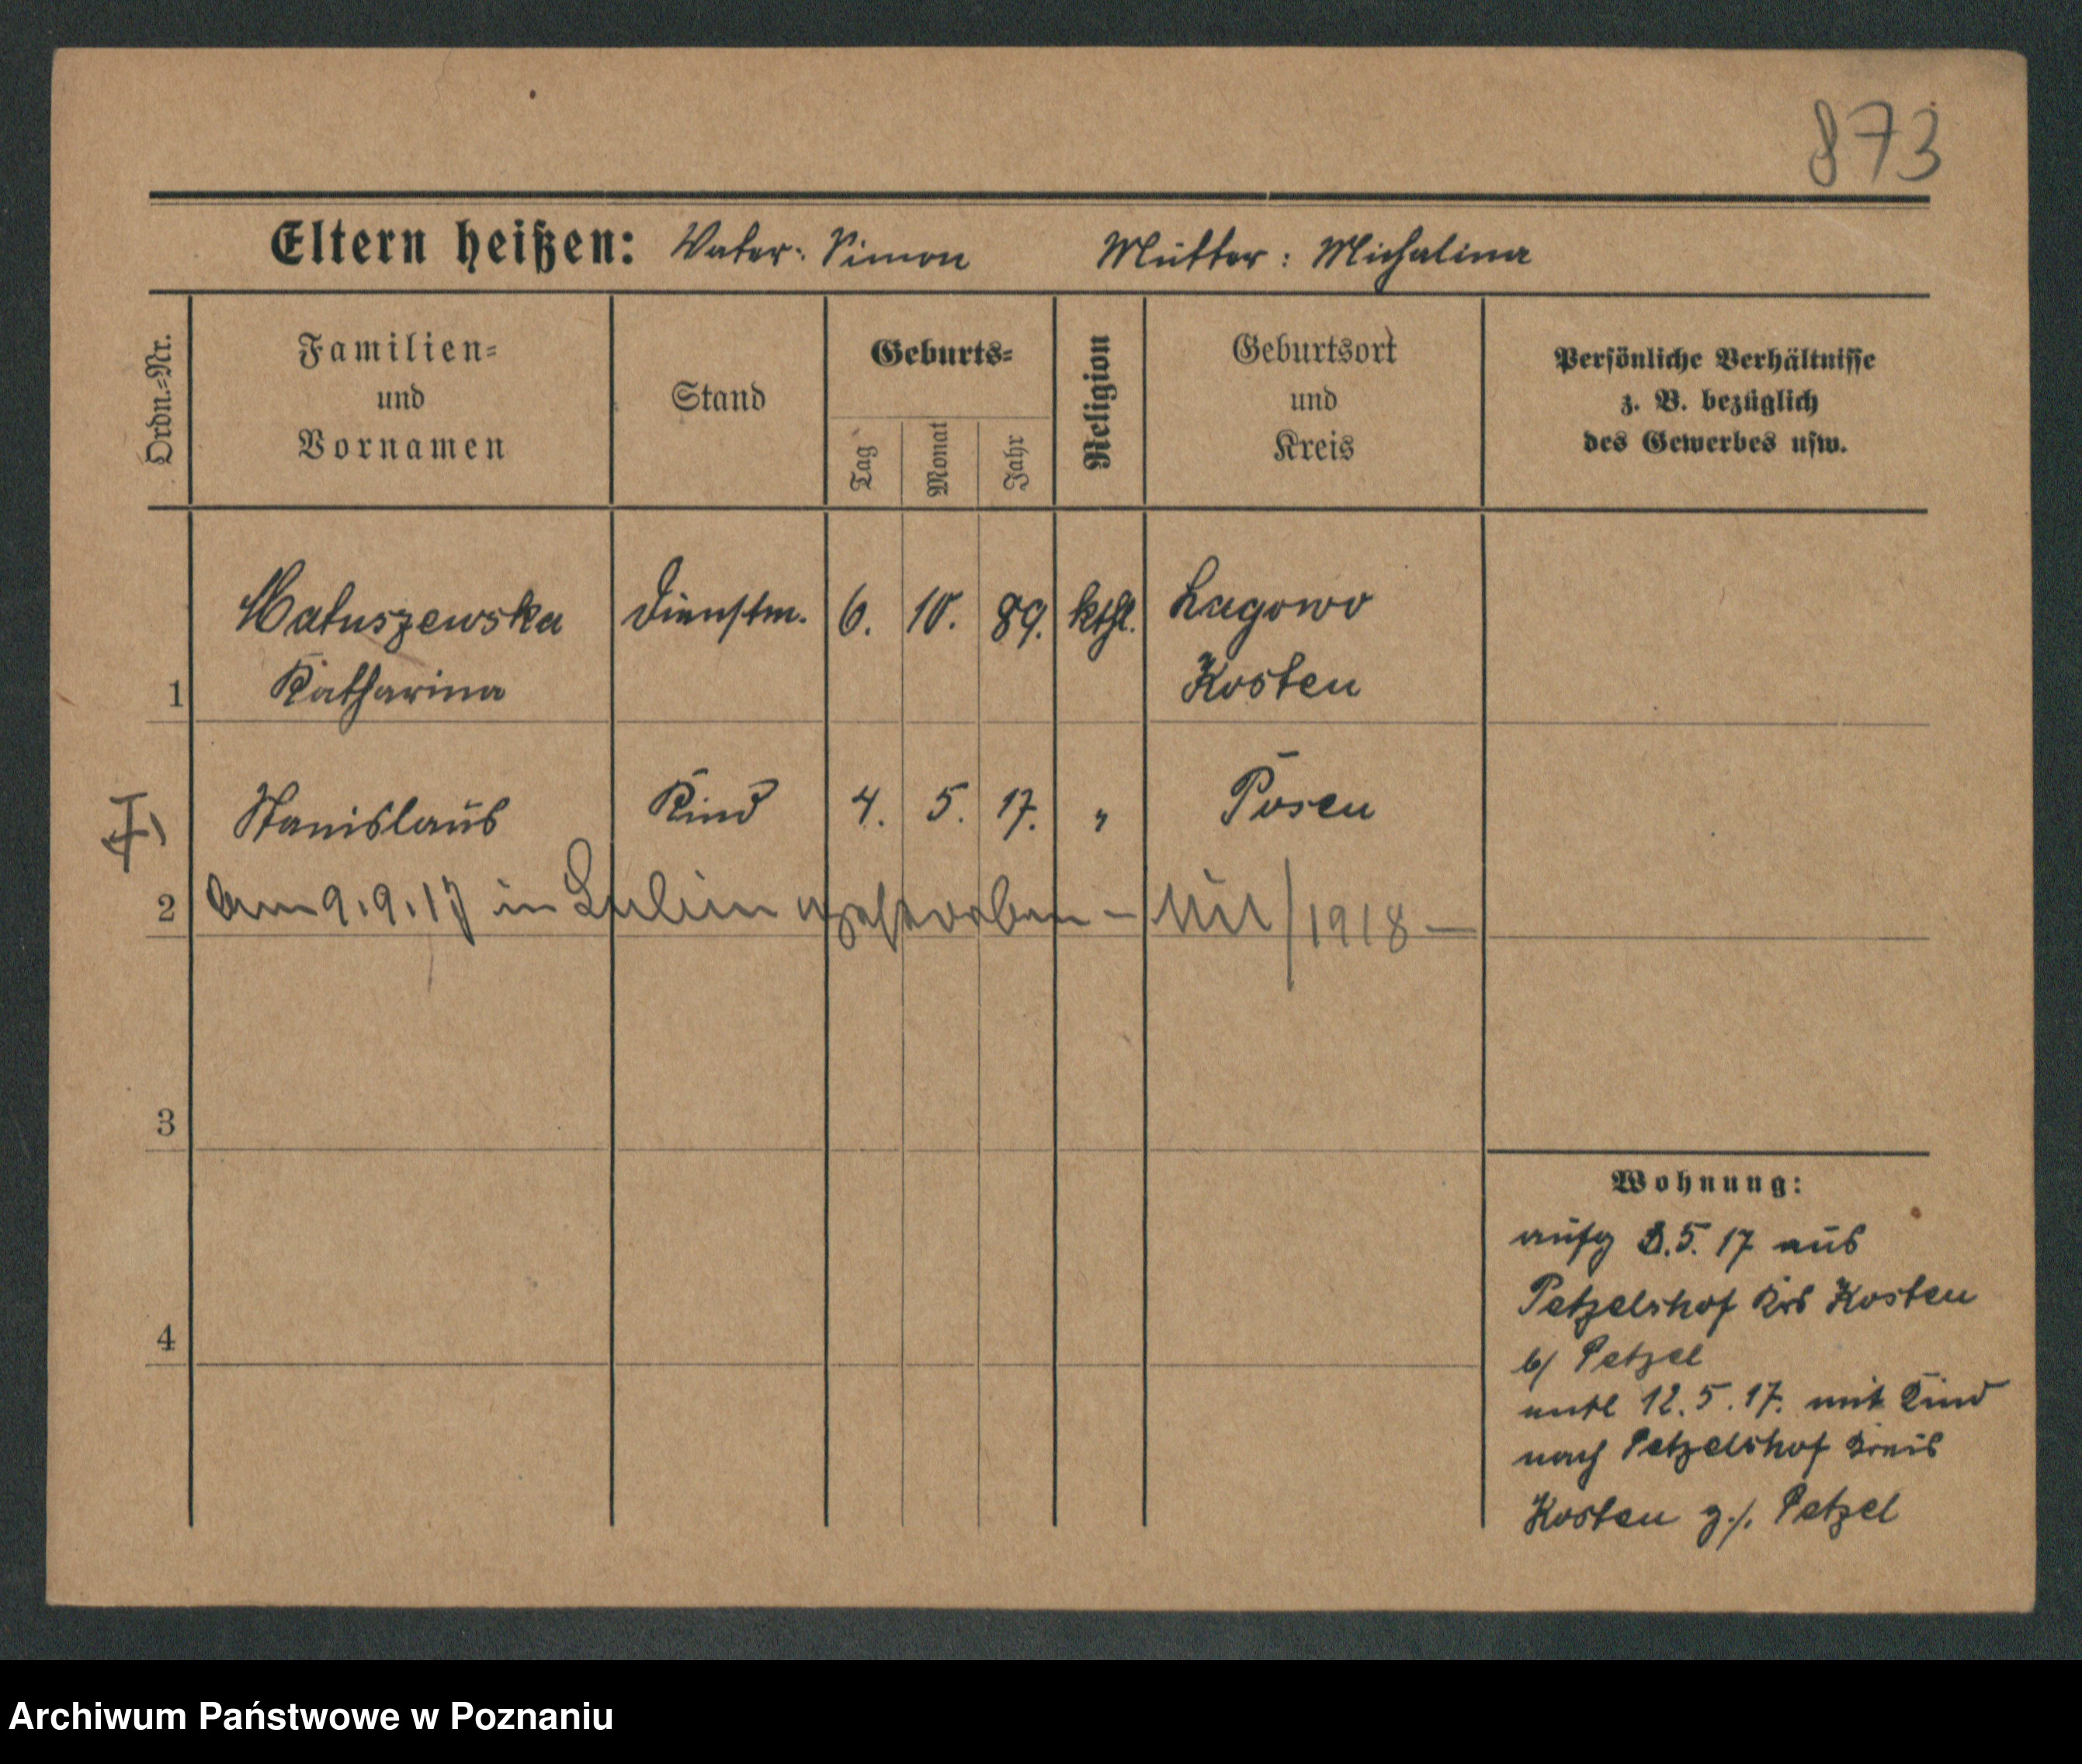 873
Eltern heißen: Vater: Simon Mutter: Michalina
Ordn.-Nr.
Familien-
und
Vornamen
Stand
Geburts-
Tag
Monat
Jahr
Religion
Geburtsort
und
Kreis
Persönliche Verhältnisse
z. B. bezüglich
des Gewerbes usw.
Matuszewska Dienstm. 6. 10. 89. kthl. Lagowo
1 Katharina Kosten
Stanislaus Kind 4. 5. 17. " Posen
2 am 9.9.17 in gestorben - /1918-
3
4
Wohnung:
aufg 3.5.17 aus
Petzelshof Krs Kosten
b/ Petzel
entl 12.5.17. mit Kind
nach Petzelshof Kreis
Kosten z./. Petzel
Archiwum Państwowe w Poznaniu